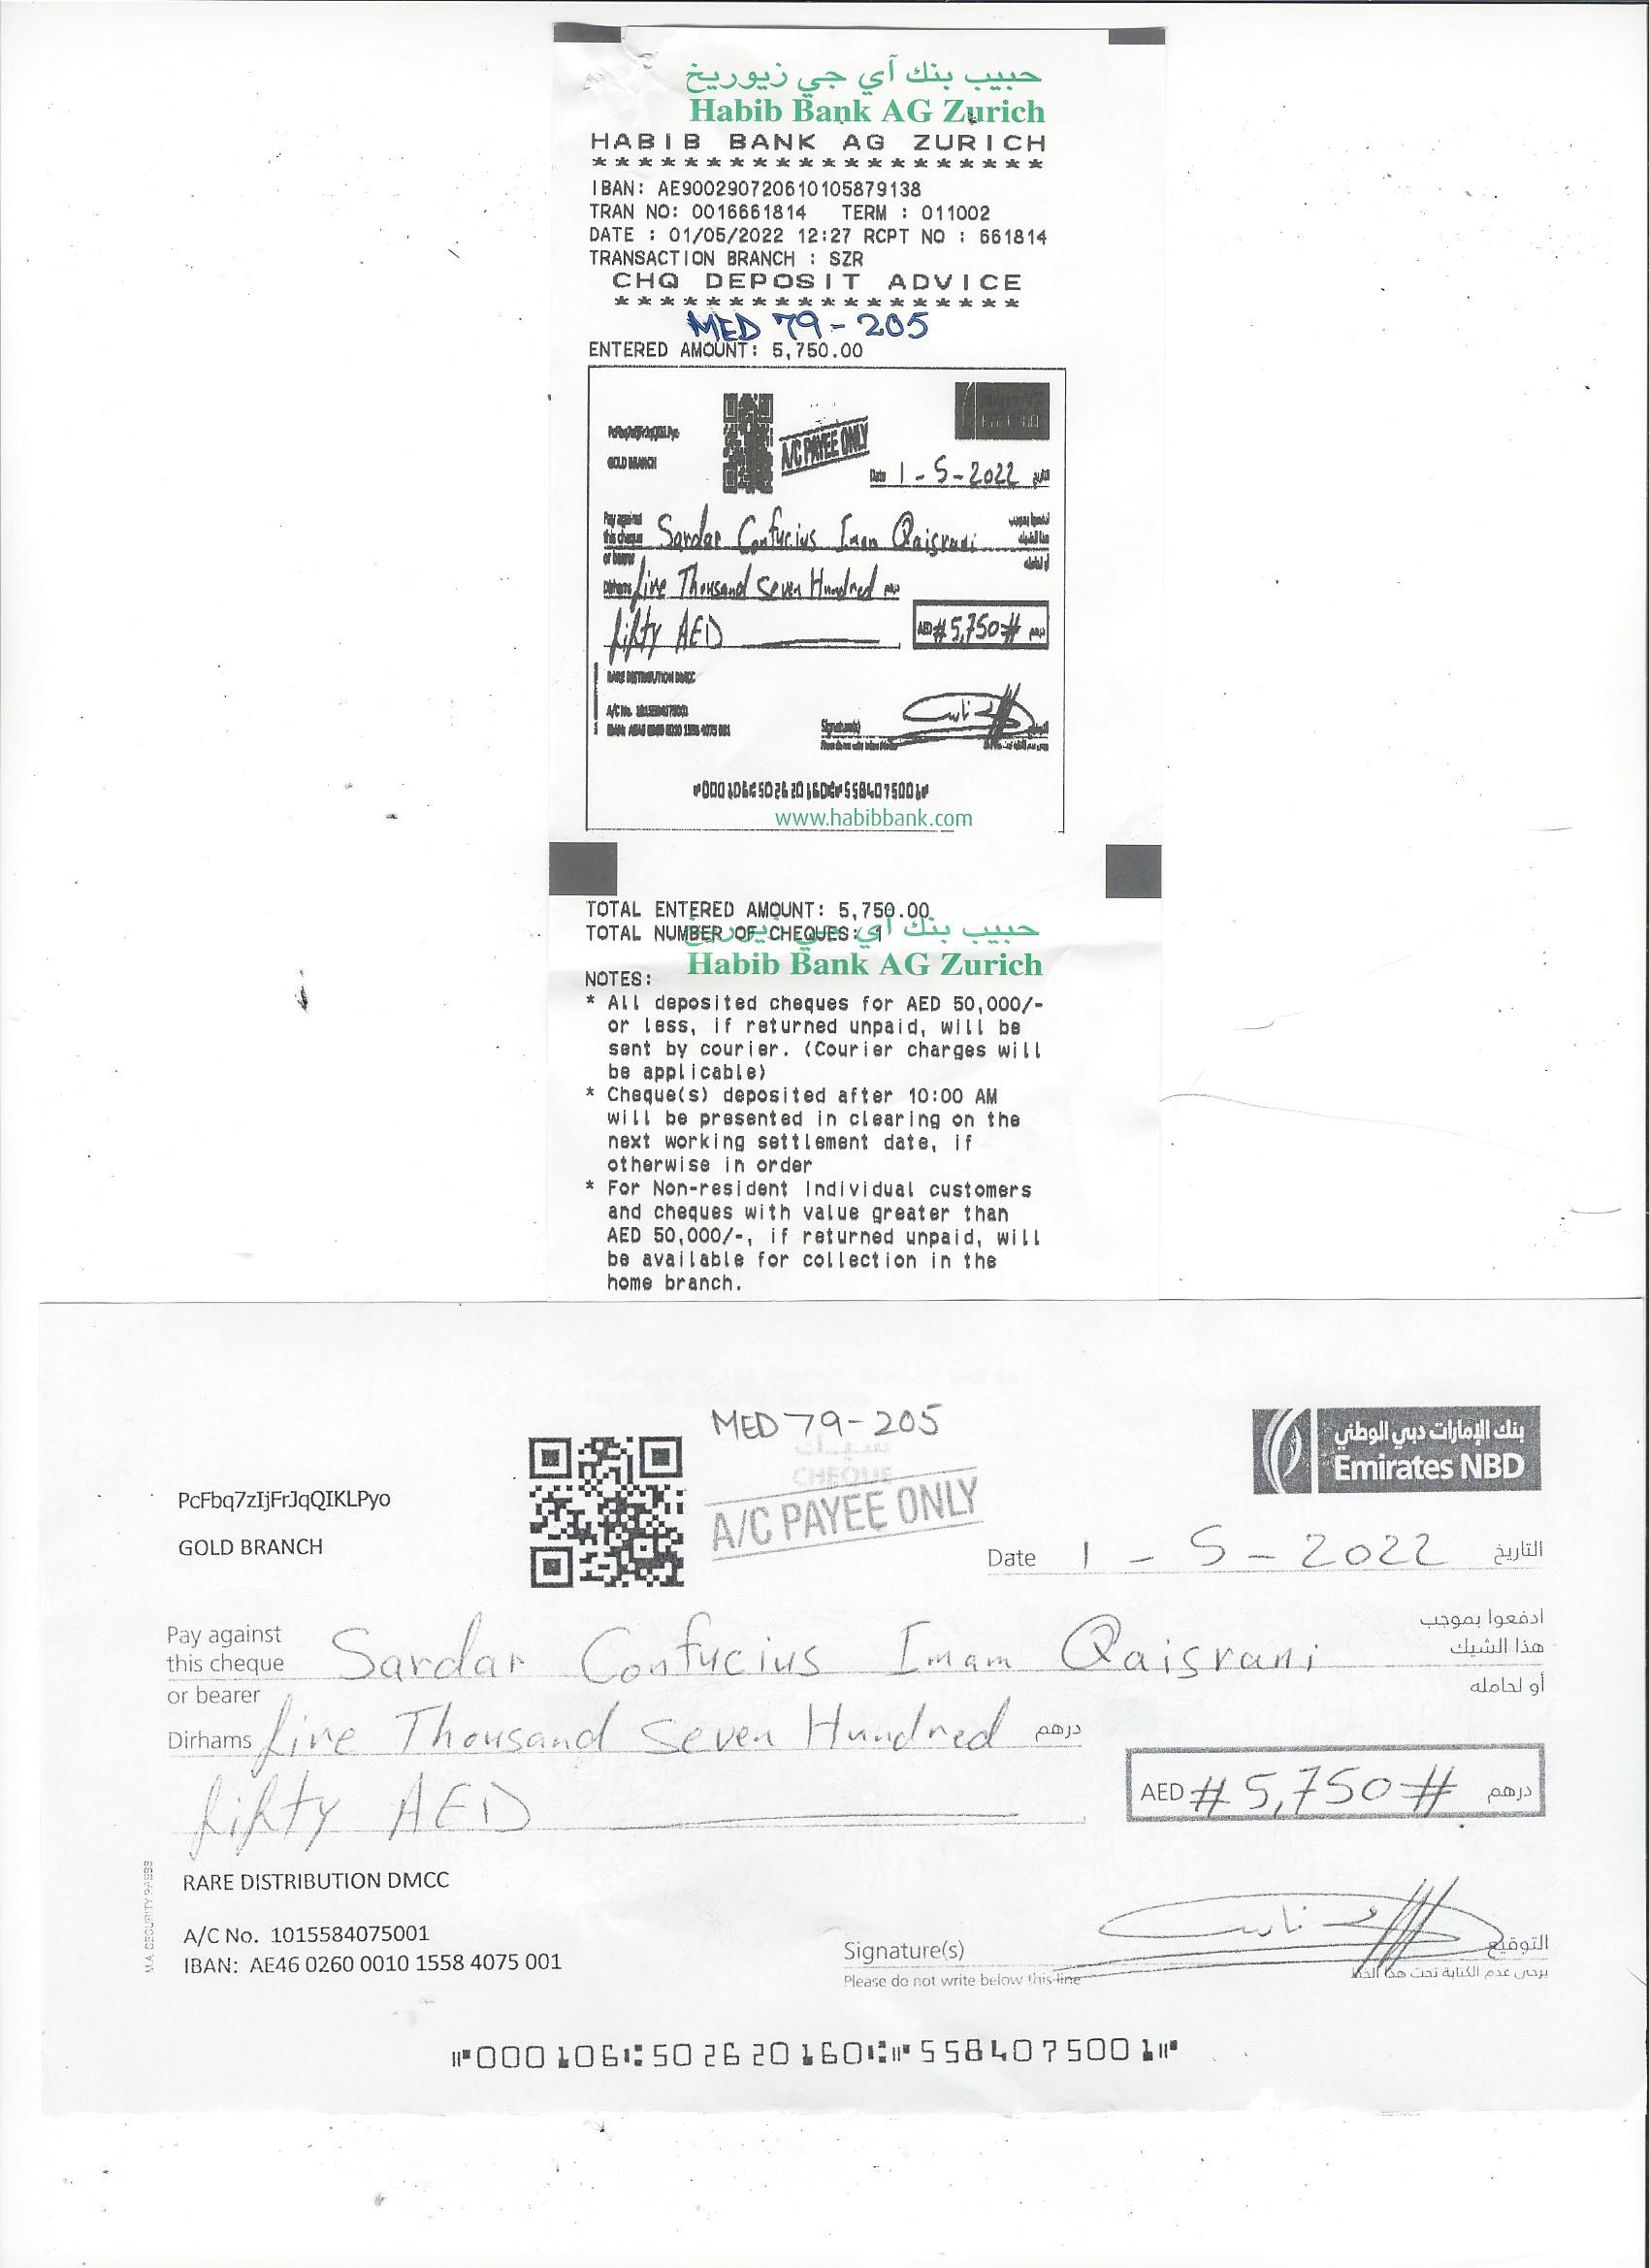 حبيب بنك آي جي زيوريخ
Habib Bank AG Zurich
HABIB BANK AG ZURICH
********************
IBAN: AE900290720610105879138
TRAN NO: 0016661814 TERM : 011002
DATE : 01/05/2022 12:27 RCPT NO : 661814
TRANSACTION BRANCH : SZR
CHQ DEPOSIT ADVICE
******************
MED 79-205
ENTERED AMOUNT: 5,750.00
GOLD BRANCH
A/C PAYEE ONLY
Date 1-5-2022 التاريخ
Pay against
this cheque Sardar Confucius Imam Qaisrani
or bearer
Dirhams five Thousand seven Hundred درهم
fifty AED
AED #5,750# درهم
RARE DISTRIBUTION DMCC
A/C No. 1015584075001
Signature(s)
000106 502620160 5584075001
www.habibbank.com
TOTAL ENTERED AMOUNT: 5,750.00
حبيب بنك آي جي زيوريخ
TOTAL NUMBER OF CHEQUES: 1
Habib Bank AG Zurich
NOTES:
* All deposited cheques for AED 50,000/-
or less, if returned unpaid, will be
sent by courier. (Courier charges will
be applicable)
* Cheque(s) deposited after 10:00 AM
will be presented in clearing on the
next working settlement date, if
otherwise in order
* For Non-resident Individual customers
and cheques with value greater than
AED 50,000/-, if returned unpaid, will
be available for collection in the
home branch.
MED 79-205
بنك الإمارات دبي الوطني
Emirates NBD
شيك
CHEQUE
A/C PAYEE ONLY
PcFbq7zIjFrJqQIKLPyo
GOLD BRANCH
Date 1-5-2022 التاريخ
Pay against ادفعوا بموجب
this cheque Sardar Confucius Imam Qaisrani هذا الشيك
or bearer أو لحامله
Dirhams five Thousand seven Hundred درهم
fifty AED
AED #5,750# درهم
RARE DISTRIBUTION DMCC
A/C No. 1015584075001
IBAN: AE46 0260 0010 1558 4075 001
Signature(s) التوقيع
Please do not write below this line يرجى عدم الكتابة تحت هذا الخط
000106 502620160 5584075001